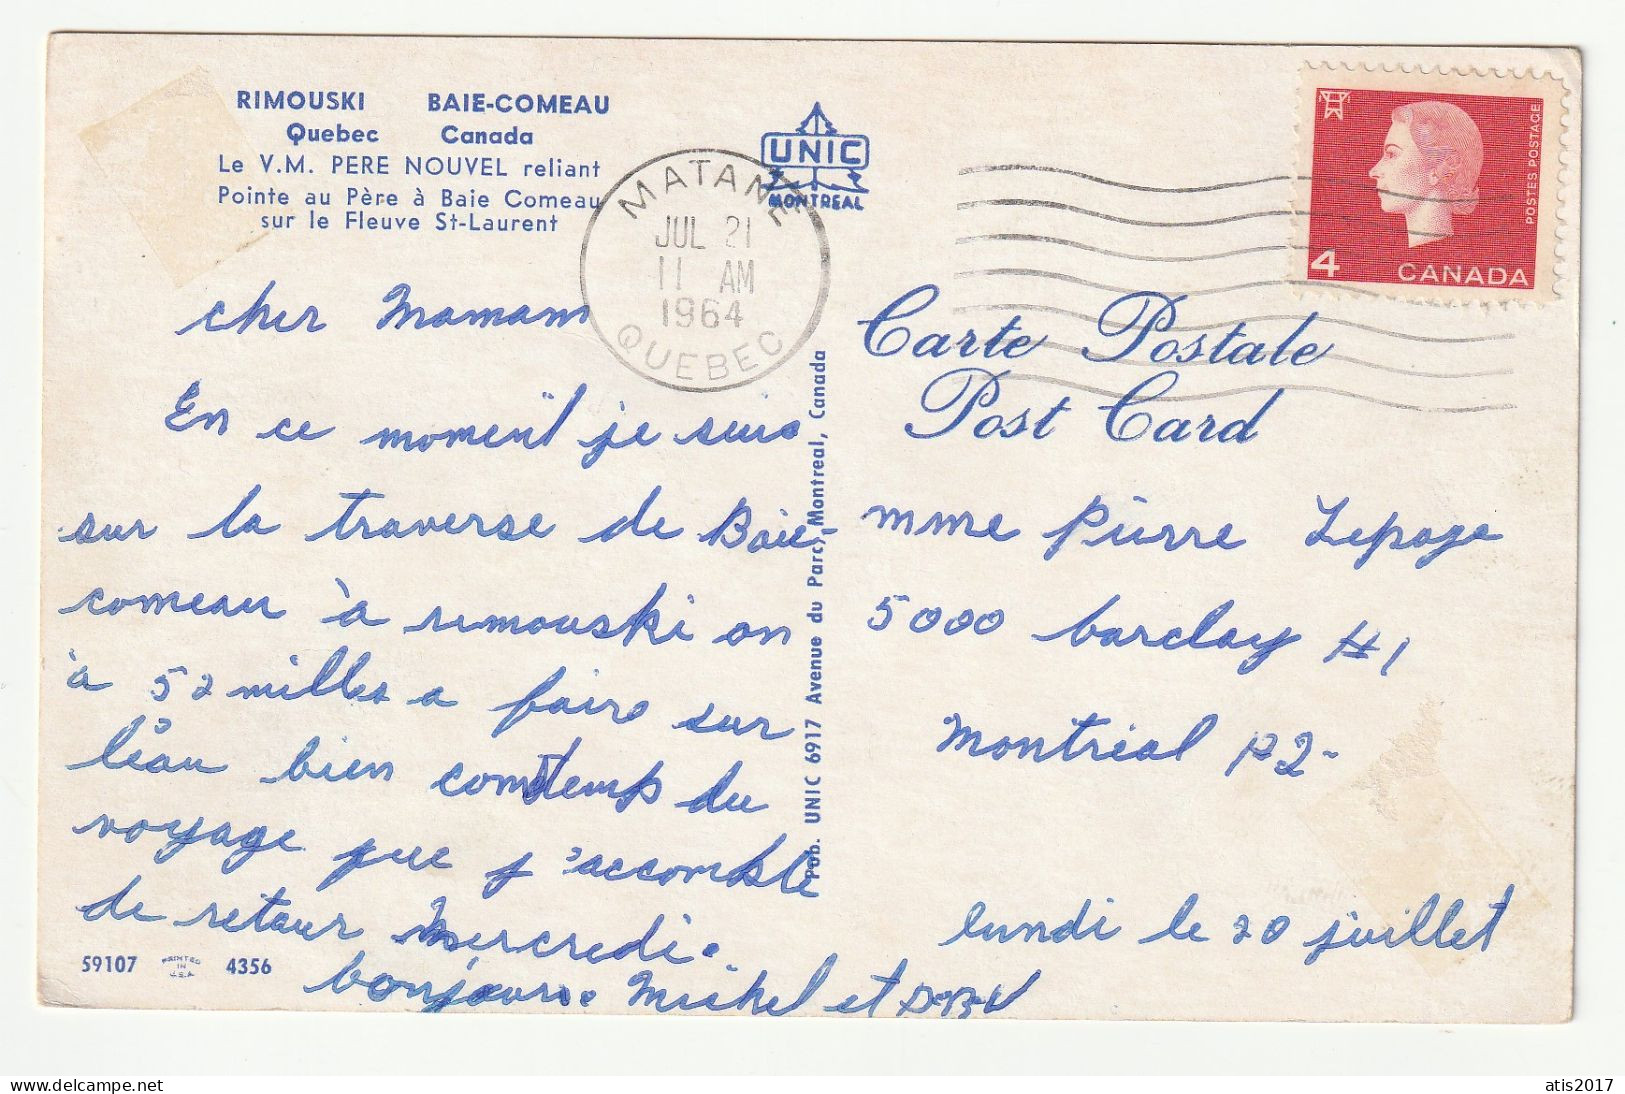 RIMOUSKI BAIE-COMEAU
Quebec Canada
Le V.M. PERE NOUVEL reliant
Pointe au Père à Baie Comeau
sur le Fleuve St-Laurent
UNIC
MONTREAL
MATANE
JUL 21
11 AM
1964
QUEBEC
POSTES POSTAGE
4 CANADA
Carte Postale
Post Card
cher Mamam
En ce moment je suis
sur la traverse de Baie-
comeau à rimouski on
à 52 milles a faire sur
l'eau bien temps du
voyage que j'accomble
de retour Mercredi.
bonjour. Michel et
Pub. UNIC 6917 Avenue du Parc, Montreal, Canada
mme Pierre Lepage
5000 barclay #1
Montréal
lundi le 20 juillet
59107 PRINTED IN U.S.A. 4356
atis2017